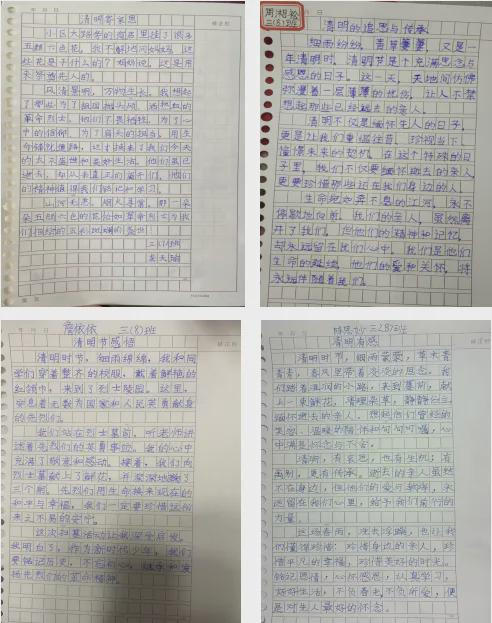 清明寄哀思
小区大路旁的
五颜六色花，我不解地问妈妈：这
些花是干什么的？妈妈说：这是用
来祭奠先人的。
风清景明，万物生长。我想起
了那些为了祖国抛头颅、洒热血的
革命烈士。他们不畏牺牲，为了心
中的信仰，为了肩头的担当，用生
命铺就道路，这才换来了我们今天
的太平盛世和美好生活。他们虽已
逝去，却从未真正的离开，他们
的精神值得我们铭记和学习。
山河无恙，烟火寻常，那一朵
朵五颜六色的花恰如革命烈士为我
们
三(8)班
周湘
三(8)班
清明的追思与传承
细雨纷纷，青草萋萋，又是一
年清明时。清明节是个充满思念与
感恩的日子。这一天，天地间仿佛
弥漫着一层薄薄的忧伤，让人不禁
想起那些已经逝去的亲人。
清明不仅是缅怀先人的日子，
更是让我们重温往昔、珍视当下、
憧憬未来的契机。在这个特殊的日
子里，我们不仅要缅怀逝去的亲人，
更要珍惜那些还在我们身边的人。
生命宛如奔不息的江河，永不
停歇地向前。我们的亲人，虽然离
开了我们，但他们的精神和记忆，
却永远留在我们心中。我们是他们
生命的延续，他们的爱和关怀，将
永远伴随着我们。
詹依依 三(8)班
清明节感悟
清明时节，细雨绵绵，我和同
学们穿着整齐的校服，戴着鲜艳的
红领巾，来到了烈士陵园。这里，
安息着无数为国家和人民英勇献身
的先烈们。
我们站在烈士墓前，听老师讲
述着先烈们的英勇事迹。我的心中
充满了敬意和感动。接着，我们向
烈士墓献上了鲜花，并深深地鞠了
三个躬。先烈们用生命换来现在的
和平与幸福，我们一定要珍惜这份
来之不易的安宁。
这次扫墓活动让我深受启发。
我明白了，作为新时代少年，我们
要铭记历史，不忘初心，继承和发
扬先烈们的革命精神。
三(8)班
清明有感
清明时节，细雨蒙蒙，草木青
青青，春风里带着淡淡的思念。我
们踏着湿润的小路，来到墓前，献
上一束鲜花，清理杂草，静静伫立，
缅怀逝去的亲人。想起他们曾经的
笑容、温暖的陪伴和句句叮嘱，心
中满是怀念与不舍。
清明，有哀思，也有生机；有
离别，更有传承。逝去的亲人虽然
不在身边，但他们的爱与教诲，永
远留在我们心里，给予我们前行的
力量。
这场春雨，洗去浮躁，也让我
们懂得珍惜：珍惜身边的亲人，珍
惜平凡的幸福，珍惜美好的时光。
铭记恩情，心怀感恩，认真学习，
好好生活，不负春光不负所爱，便
是对先人最好的怀念。